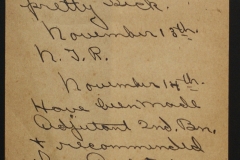 pretty sick.
November 13th.
N.T.R.
November 14th.
Have been made
Adjutant 2nd. Bn.
+ recommended